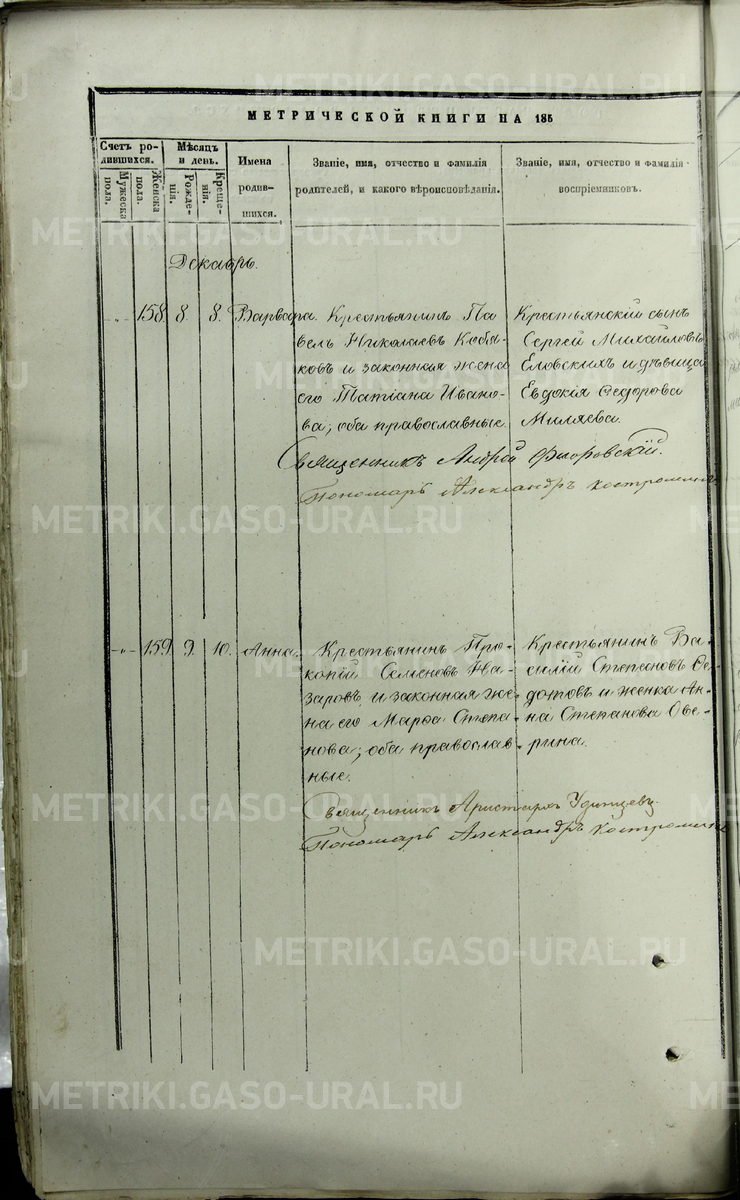 МЕТРИЧЕСКОЙ КНИГИ НА 185
Счетъ ро-
дившихся.
Мужеска
пола.
Женска
пола.
Мѣсяцъ
и день.
Рожде-
нія.
Креще-
нія.
Имена
родив-
шихся.
Званіе, имя, отчество и фамилія
родителей, и какого вѣроисповѣданія.
Званіе, имя, отчество и фамилія
воспріемниковъ.
Декабрь.
-„- 158 8 8. Варвара.
Крестьянинъ Па
велъ Николаевъ Кобя
ковъ и законная жена
его Татіана Ивано-
ва; оба православные.
Крестьянскій сынъ
Сергей Михайловъ
Еловскихъ и дѣвица
Евдокія Ѳедорова
Миляева.
Священникъ Андрей Флоровскій.
Пономарь Александръ Костроминъ
-„- 159 9 10. Анна.
Крестьянинъ Про-
копій Семеновъ На-
заровъ и законная же-
на его Марѳа Степа
нова; оба православ-
ные.
Крестьянинъ Ва-
силій Степановъ Ѳе-
дотовъ и женка Ан-
на Степанова Ове-
рина.
Священникъ Аристархъ Удинцевъ
Пономарь Александръ Костроминъ
METRIKI.GASO-URAL.RU